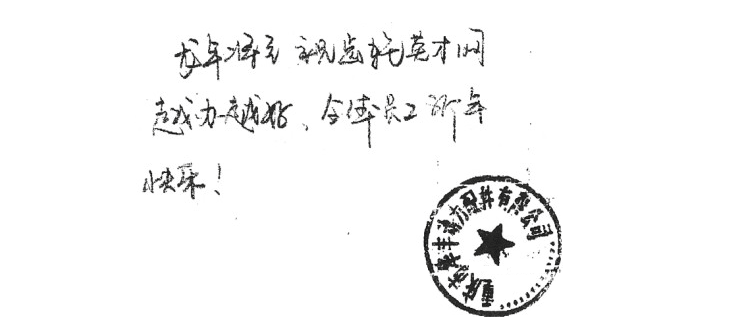 龙年将至 祝齿轮英才网
越办越好、全体员工新年
快乐！
重庆市 丰 力配件有限公司